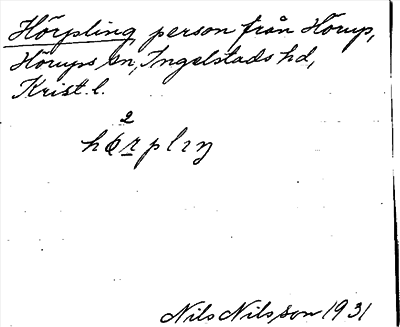 Hörpling person från Hörup,
Hörups sn, Ingelstads hd,
Krist. l.
2
hørplıŋ
Nils Nilsson 1931